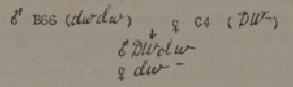 ♂ B66 (dwdw) ♀ C4 (DW-)
↓
♂ DWdw
♀ dw-